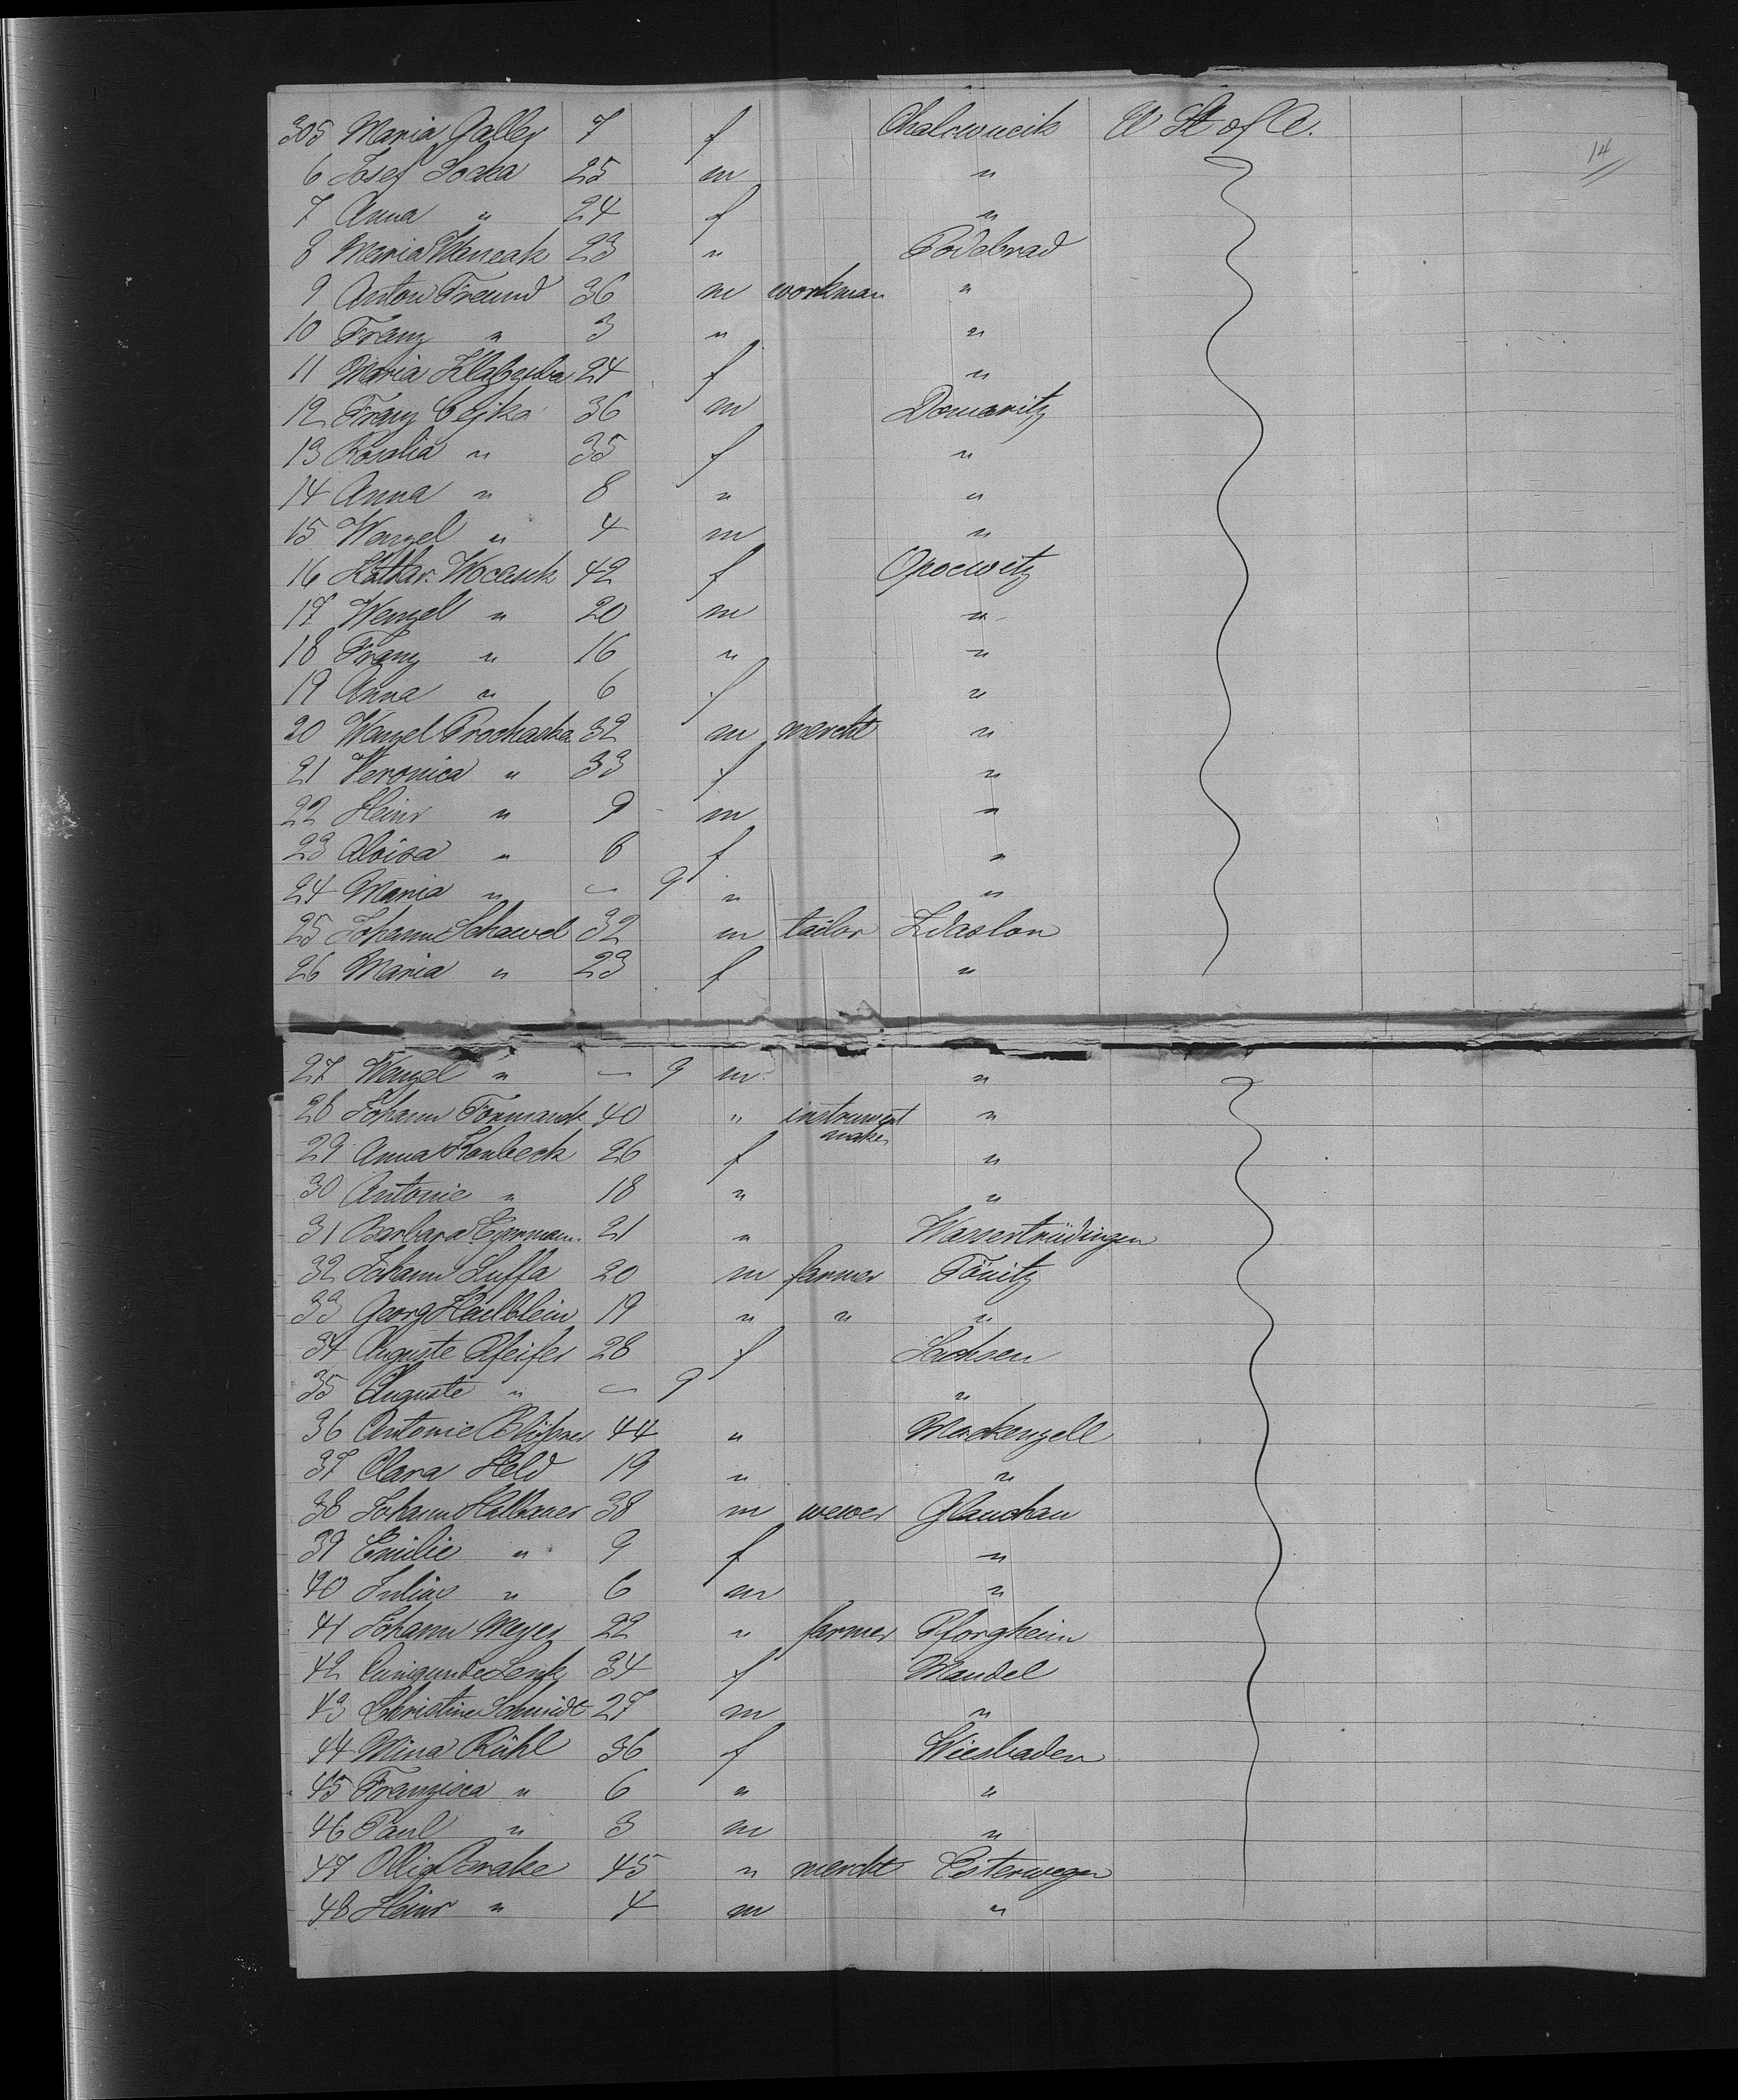 305 Maria Galley 7 f Chalowucik U St of A.
14
6 Josef Socka 25 m "
7 Anna " 24 f "
8 Maria 23 " Podebrad
9 Anton Freund 36 m workman "
10 Franz " 3 " "
11 Maria 24 f "
12 Franz Cejka 36 m Domaritz
13 Rosalia " 35 f "
14 Anna " 8 " "
15 Wenzel " 4 m "
16 Kathar. Wocasek 42 f Opocwitz
17 Wenzel " 20 m "
18 Franz " 16 " "
19 Anna " 6 f "
20 Wenzel Prochaska 32 m mercht "
21 Veronica " 33 f "
22 Heinr " 9 m "
23 Aloisa " 6 f "
24 Maria " — 9 " "
25 Johann Schawel 32 m tailor Zdaslon
26 Maria " 23 f "
27 Wenzel " — 9 m "
28 Johann Formanek 40 " instrument maker "
29 Anna Konbeck 26 f "
30 Antonie " 18 " "
31 Barbara Egermann 21 " Wassertrüdingen
32 Johann Luffa 20 m farmer Tönitz
33 Georg Häublein 19 " " "
34 Auguste Pfeifer 28 f Sachsen
35 Auguste " — 9 "
36 Antonie 44 " Mackenzell
37 Clara Held 19 " "
38 Johann Hallbauer 38 m wewer Glauchau
39 Emilie " 9 f "
40 Julius " 6 m "
41 Johann Meyer 22 " farmer Pforzheim
42 Cunigunde Lenk 34 f Mandel
43 Christine Schmidt 27 m "
44 Mina Rühl 36 f Wiesbaden
45 Franzisca " 6 " "
46 Paul " 3 m "
47 45 " mercht Esterwegen
48 Heinr " 4 m "